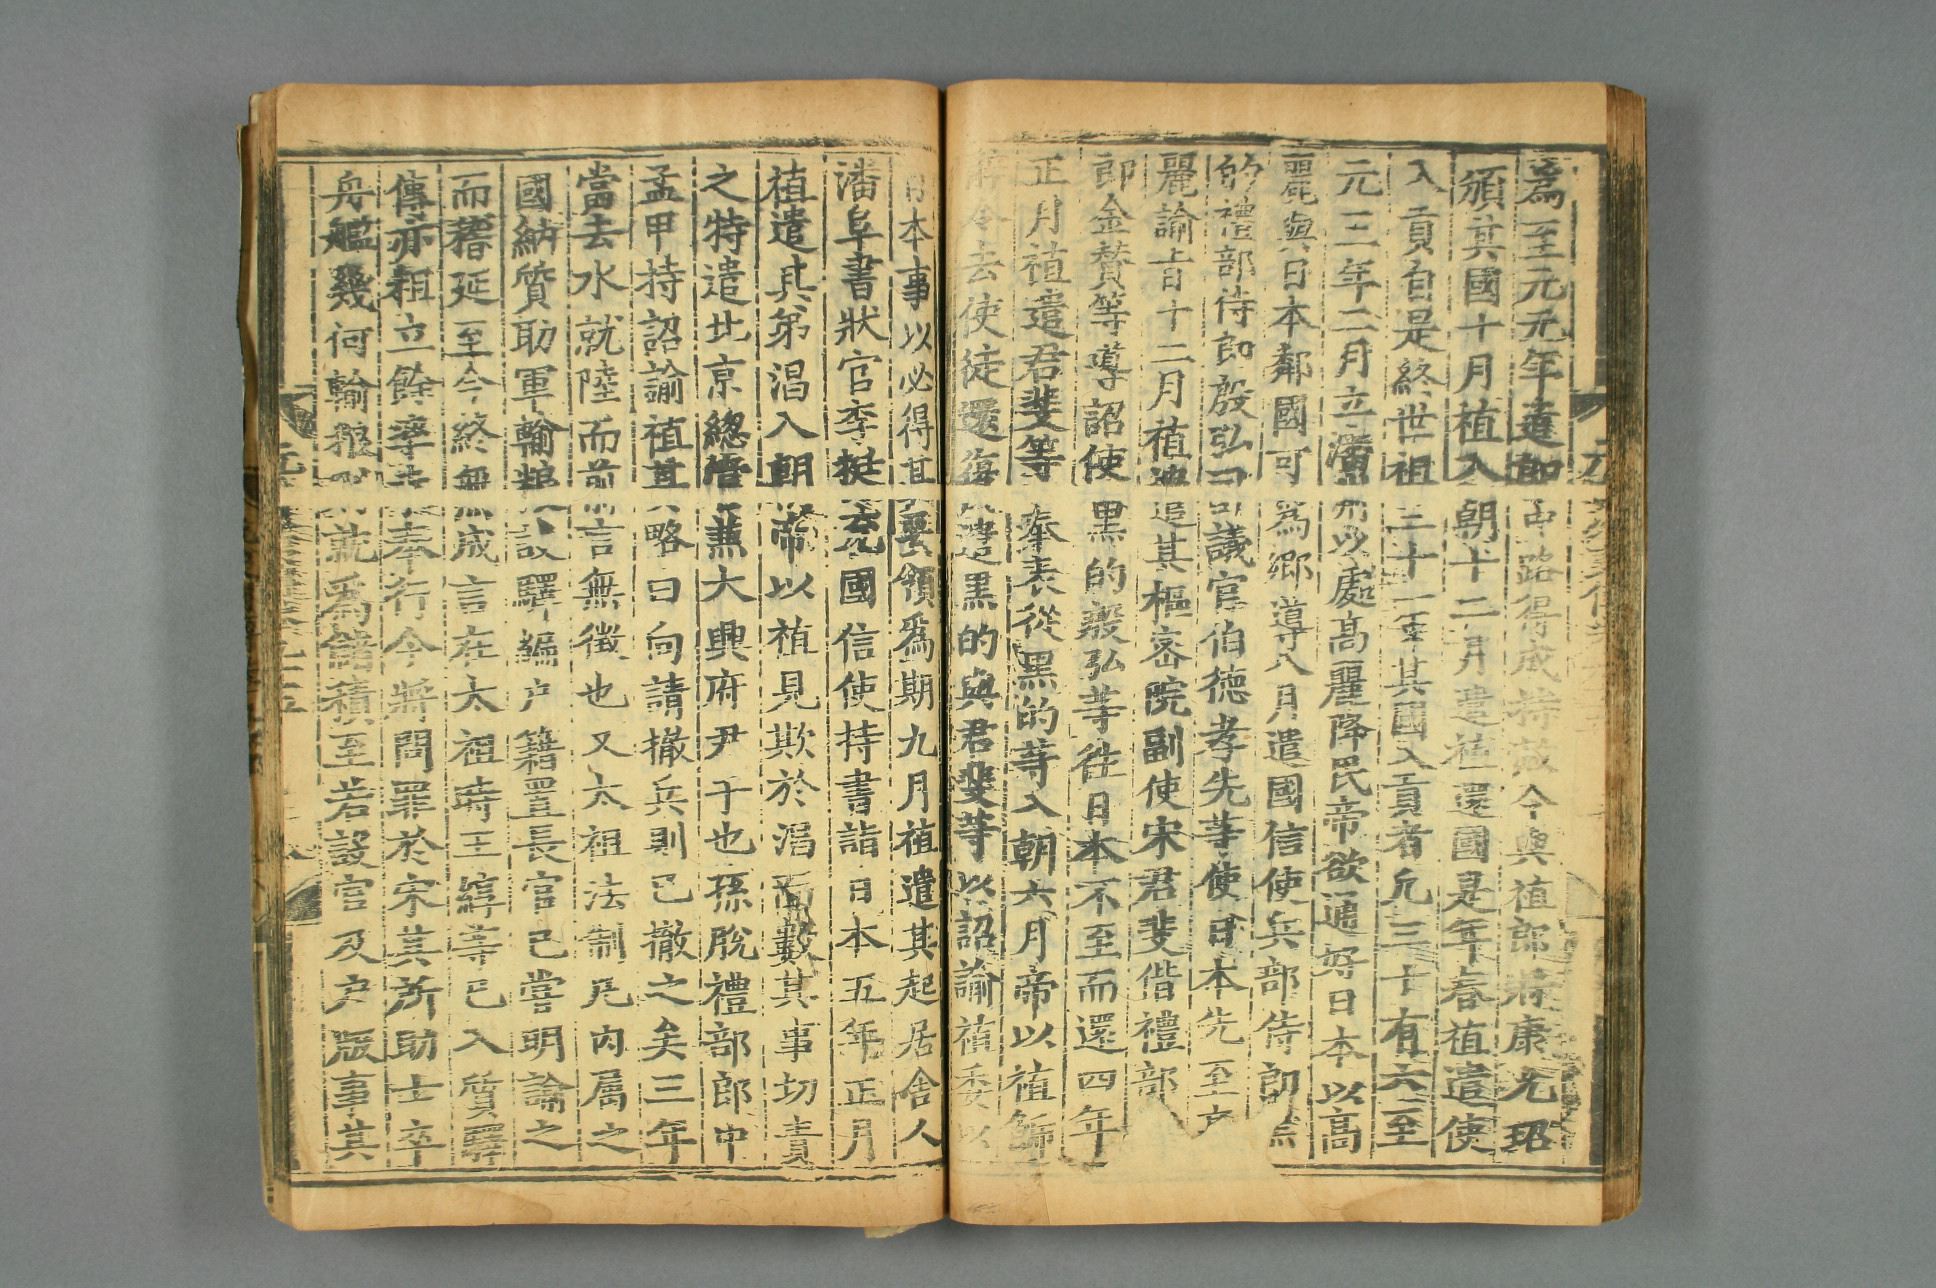 為至元元年遣郎中路得成持赦令與禃郎將康允㺹
頒其國十月禃入朝十二月遣禃還國是年春禃遣使
入貢自是終世祖三十一年其國入貢者凡三十有六至
元三年二月立瀋州以處高麗降民帝欲通好日本以高
麗與日本鄰國可為鄉導八月遣國信使兵部侍郎黑
的禮部侍郎殷弘計議官伯德孝先等使日本先至高
麗諭旨十二月禃遣其樞密院副使宋君斐偕禮部
郎金賛等導詔使黑的殷弘等往日本不至而還四年
正月禃遣君斐等奉表從黑的等入朝六月帝以禃飾
辭令去使徒還復遣黑的與君斐等以詔諭禃委以
日本事以必得其要領為期九月禃遣其起居舍人
潘阜書狀官李挺充國信使持書詣日本五年正月
禃遣其弟淐入朝帝以禃見欺於淐面數其事切責
之特遣北京總管兼大興府尹于也孫脫禮部郎中
孟甲持詔諭禃其略曰向請撤兵則已撤之矣三年
當去水就陸而前言無徵也又太祖法制凡內屬之
國納質助軍輸糧設驛編户籍置長官已嘗明諭之
而稽延至今終無成言在太祖時王綧等已入質驛
傳亦粗立餘率未奉行今將問罪於宋其所助士卒
舟艦幾何輸糧則就為儲積至若設官及户版事其